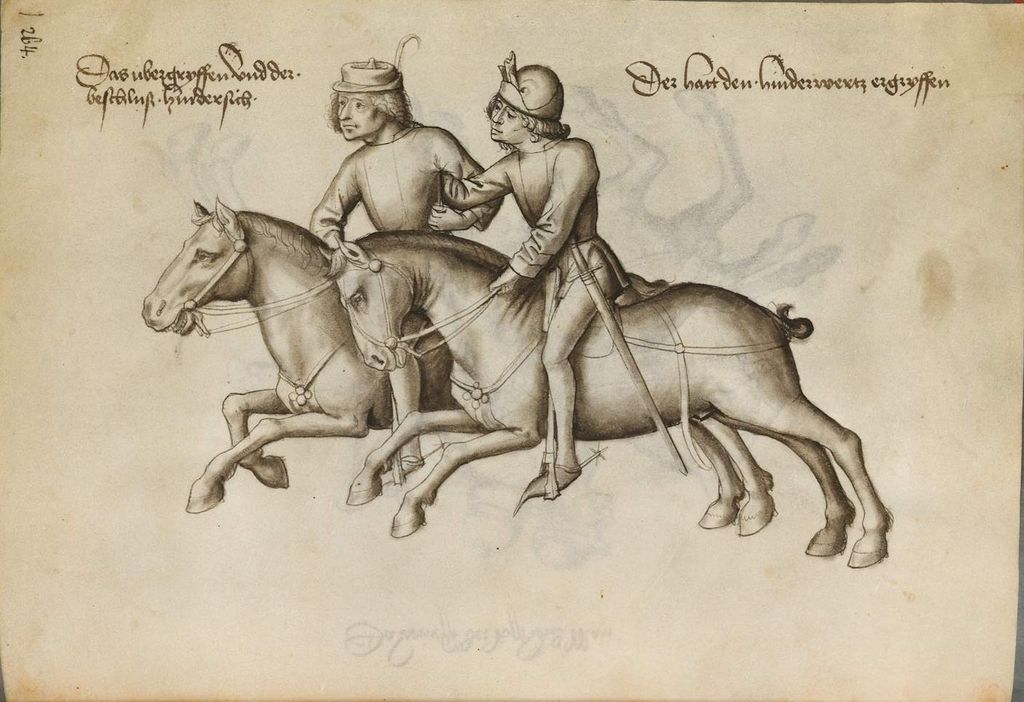 264.
Das übergryffen vnd der
beschlus hindersich.
Der hatt den hinderwertz ergryffen